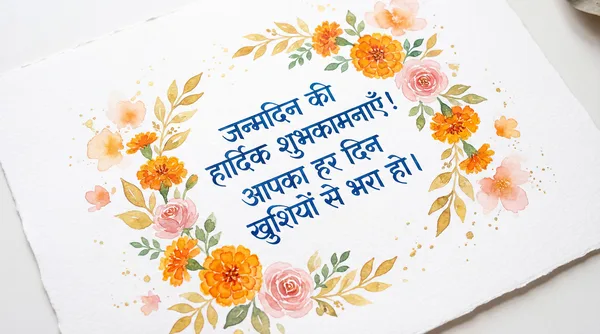 जन्मदिन की
हार्दिक शुभकामनाएँ!
आपका हर दिन
खुशियों से भरा हो।